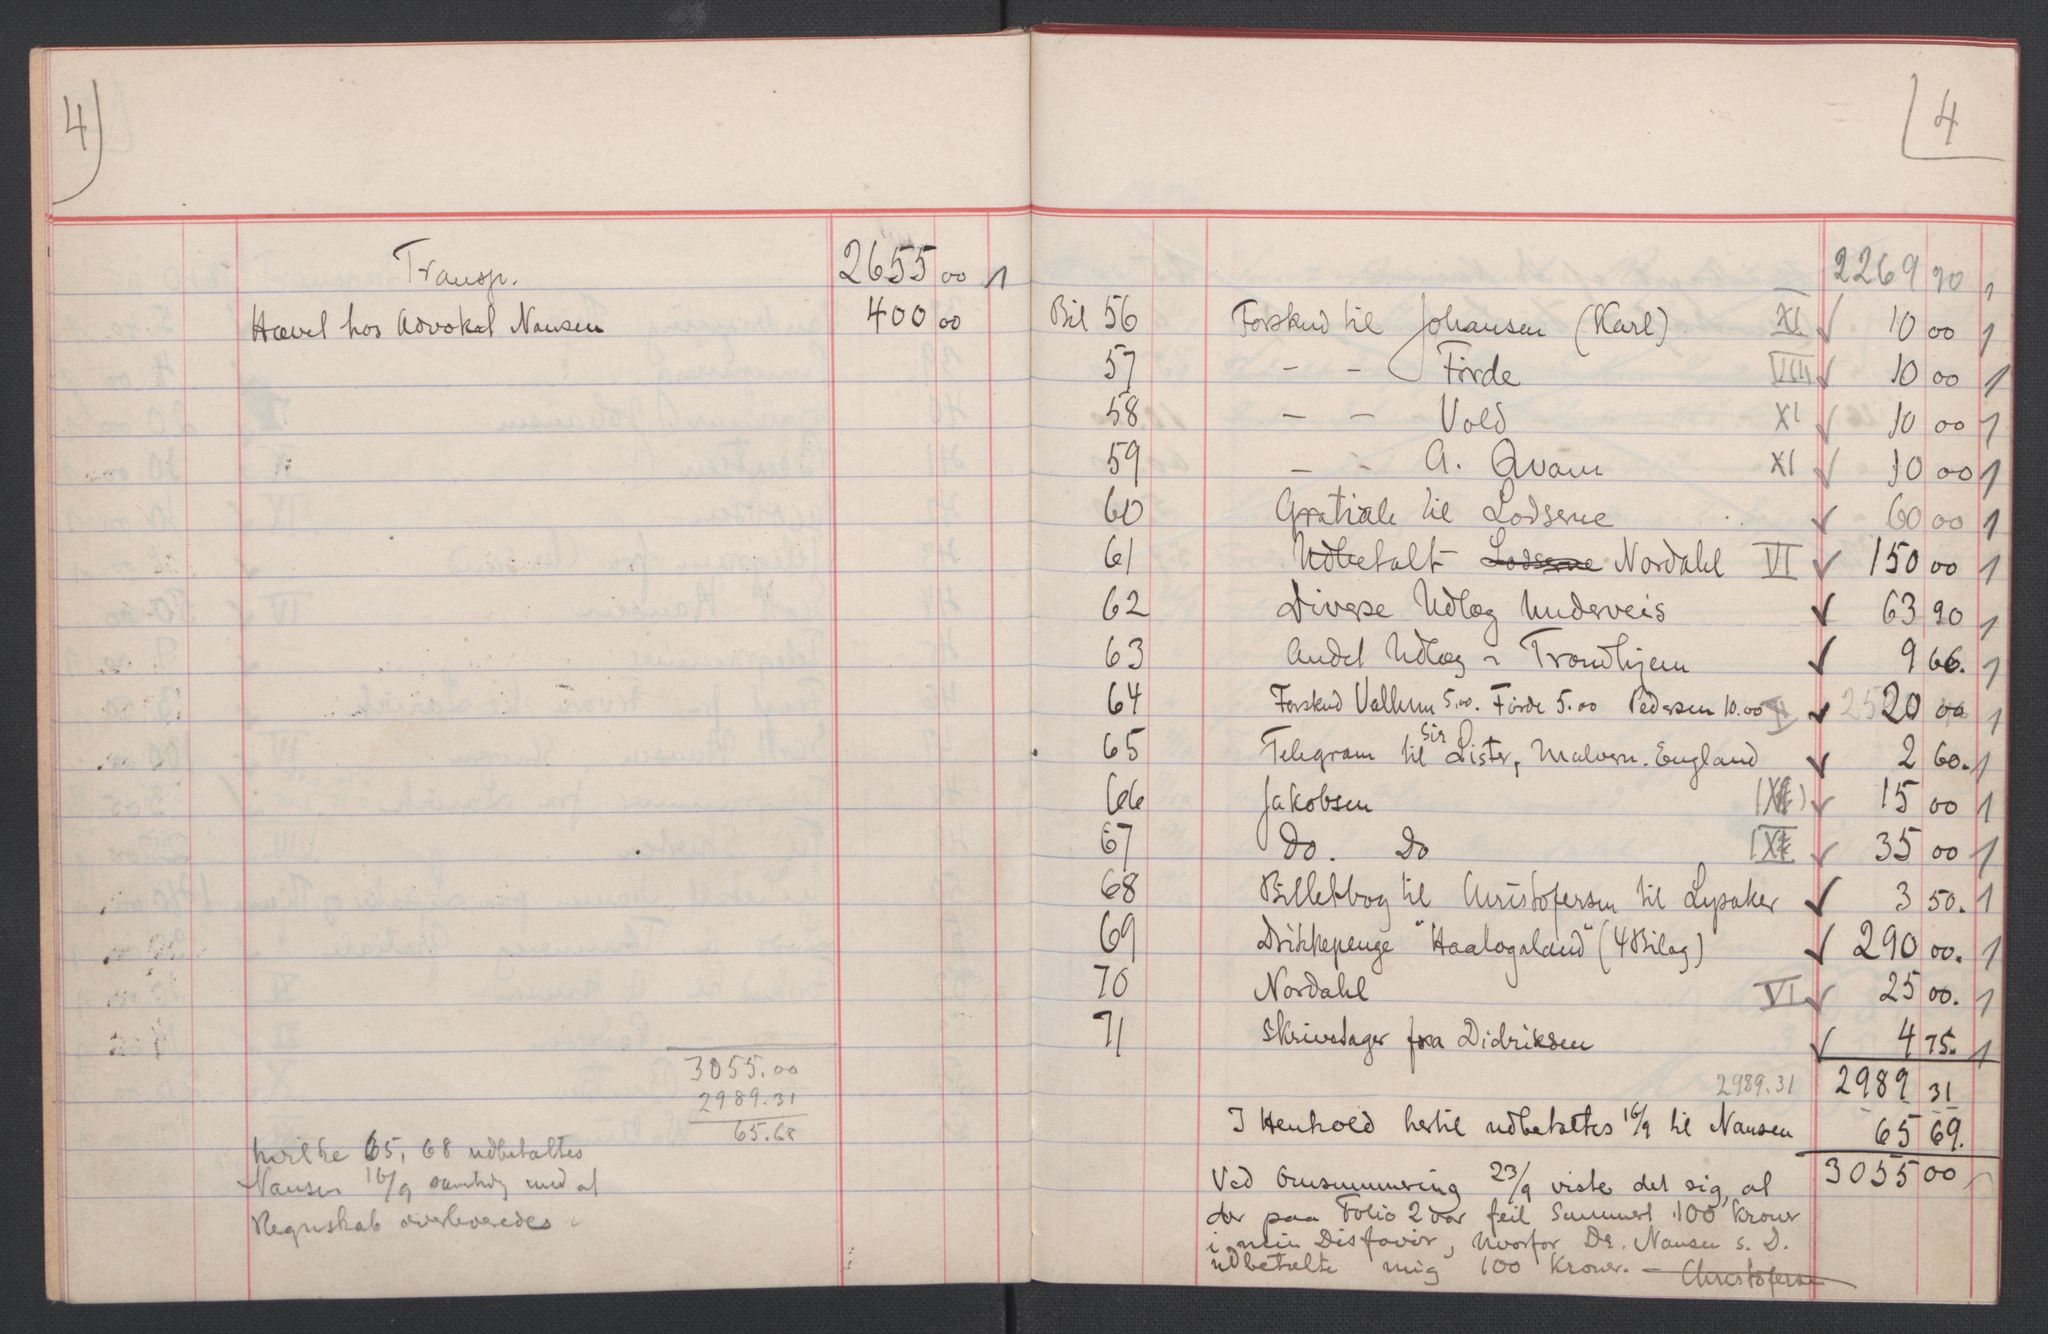 4
Transp. 2655 00 1
Hævet hos Advokat Nansen 400 00
3055.00
2989.31
65.68
hvilke 65,68 udbetaltes
Nansen 16/9 samtidig med at
Regnskab overleveredes
4
2269 90 1
Bil 56 Forskud til Johansen (Karl) XI ✓ 10 00 1
57 – – Förde VIII ✓ 10 00 1
58 – – Vold XI ✓ 10 00 1
59 – – A. Qvam XI ✓ 10 00 1
60 Gratiale til Lodserne ✓ 60 00 1
61 Udbetalt Lodserne Nordahl VI ✓ 150 00 1
62 Diverse Udlæg Underveis ✓ 63 90 1
63 Andet Udlæg – Trondhjem ✓ 9 66. 1
64 Forskud Vallum 5.00. Förde 5.00 Pedersen 10.00 ✓ 20 00 1
65 Telegram til Sir Lister, Malvern. England ✓ 2 60. 1
66 Jakobsen ✓ 15 00 1
67 Do. Do ✓ 35 00 1
68 Billetbog til Christofersen til Lysaker ✓ 3 50. 1
69 Drikkepenge "Haalogaland" (4 Bilag) ✓ 290 00. 1
70 Nordahl VI ✓ 25 00. 1
71 Skrivesager fra Didriksen ✓ 4 75. 1
2989.31 2989 31
I Henhold hertil udbetaltes 16/9 til Nansen 65 69.
3055 00
Ved Omsummering 23/9 viste det sig, at
der paa Folio 2 var feil summert 100 Kroner
i min Disfavør, hvorfor Dr. Nansen s. D.
udbetalte mig 100 Kroner. – Christofersen